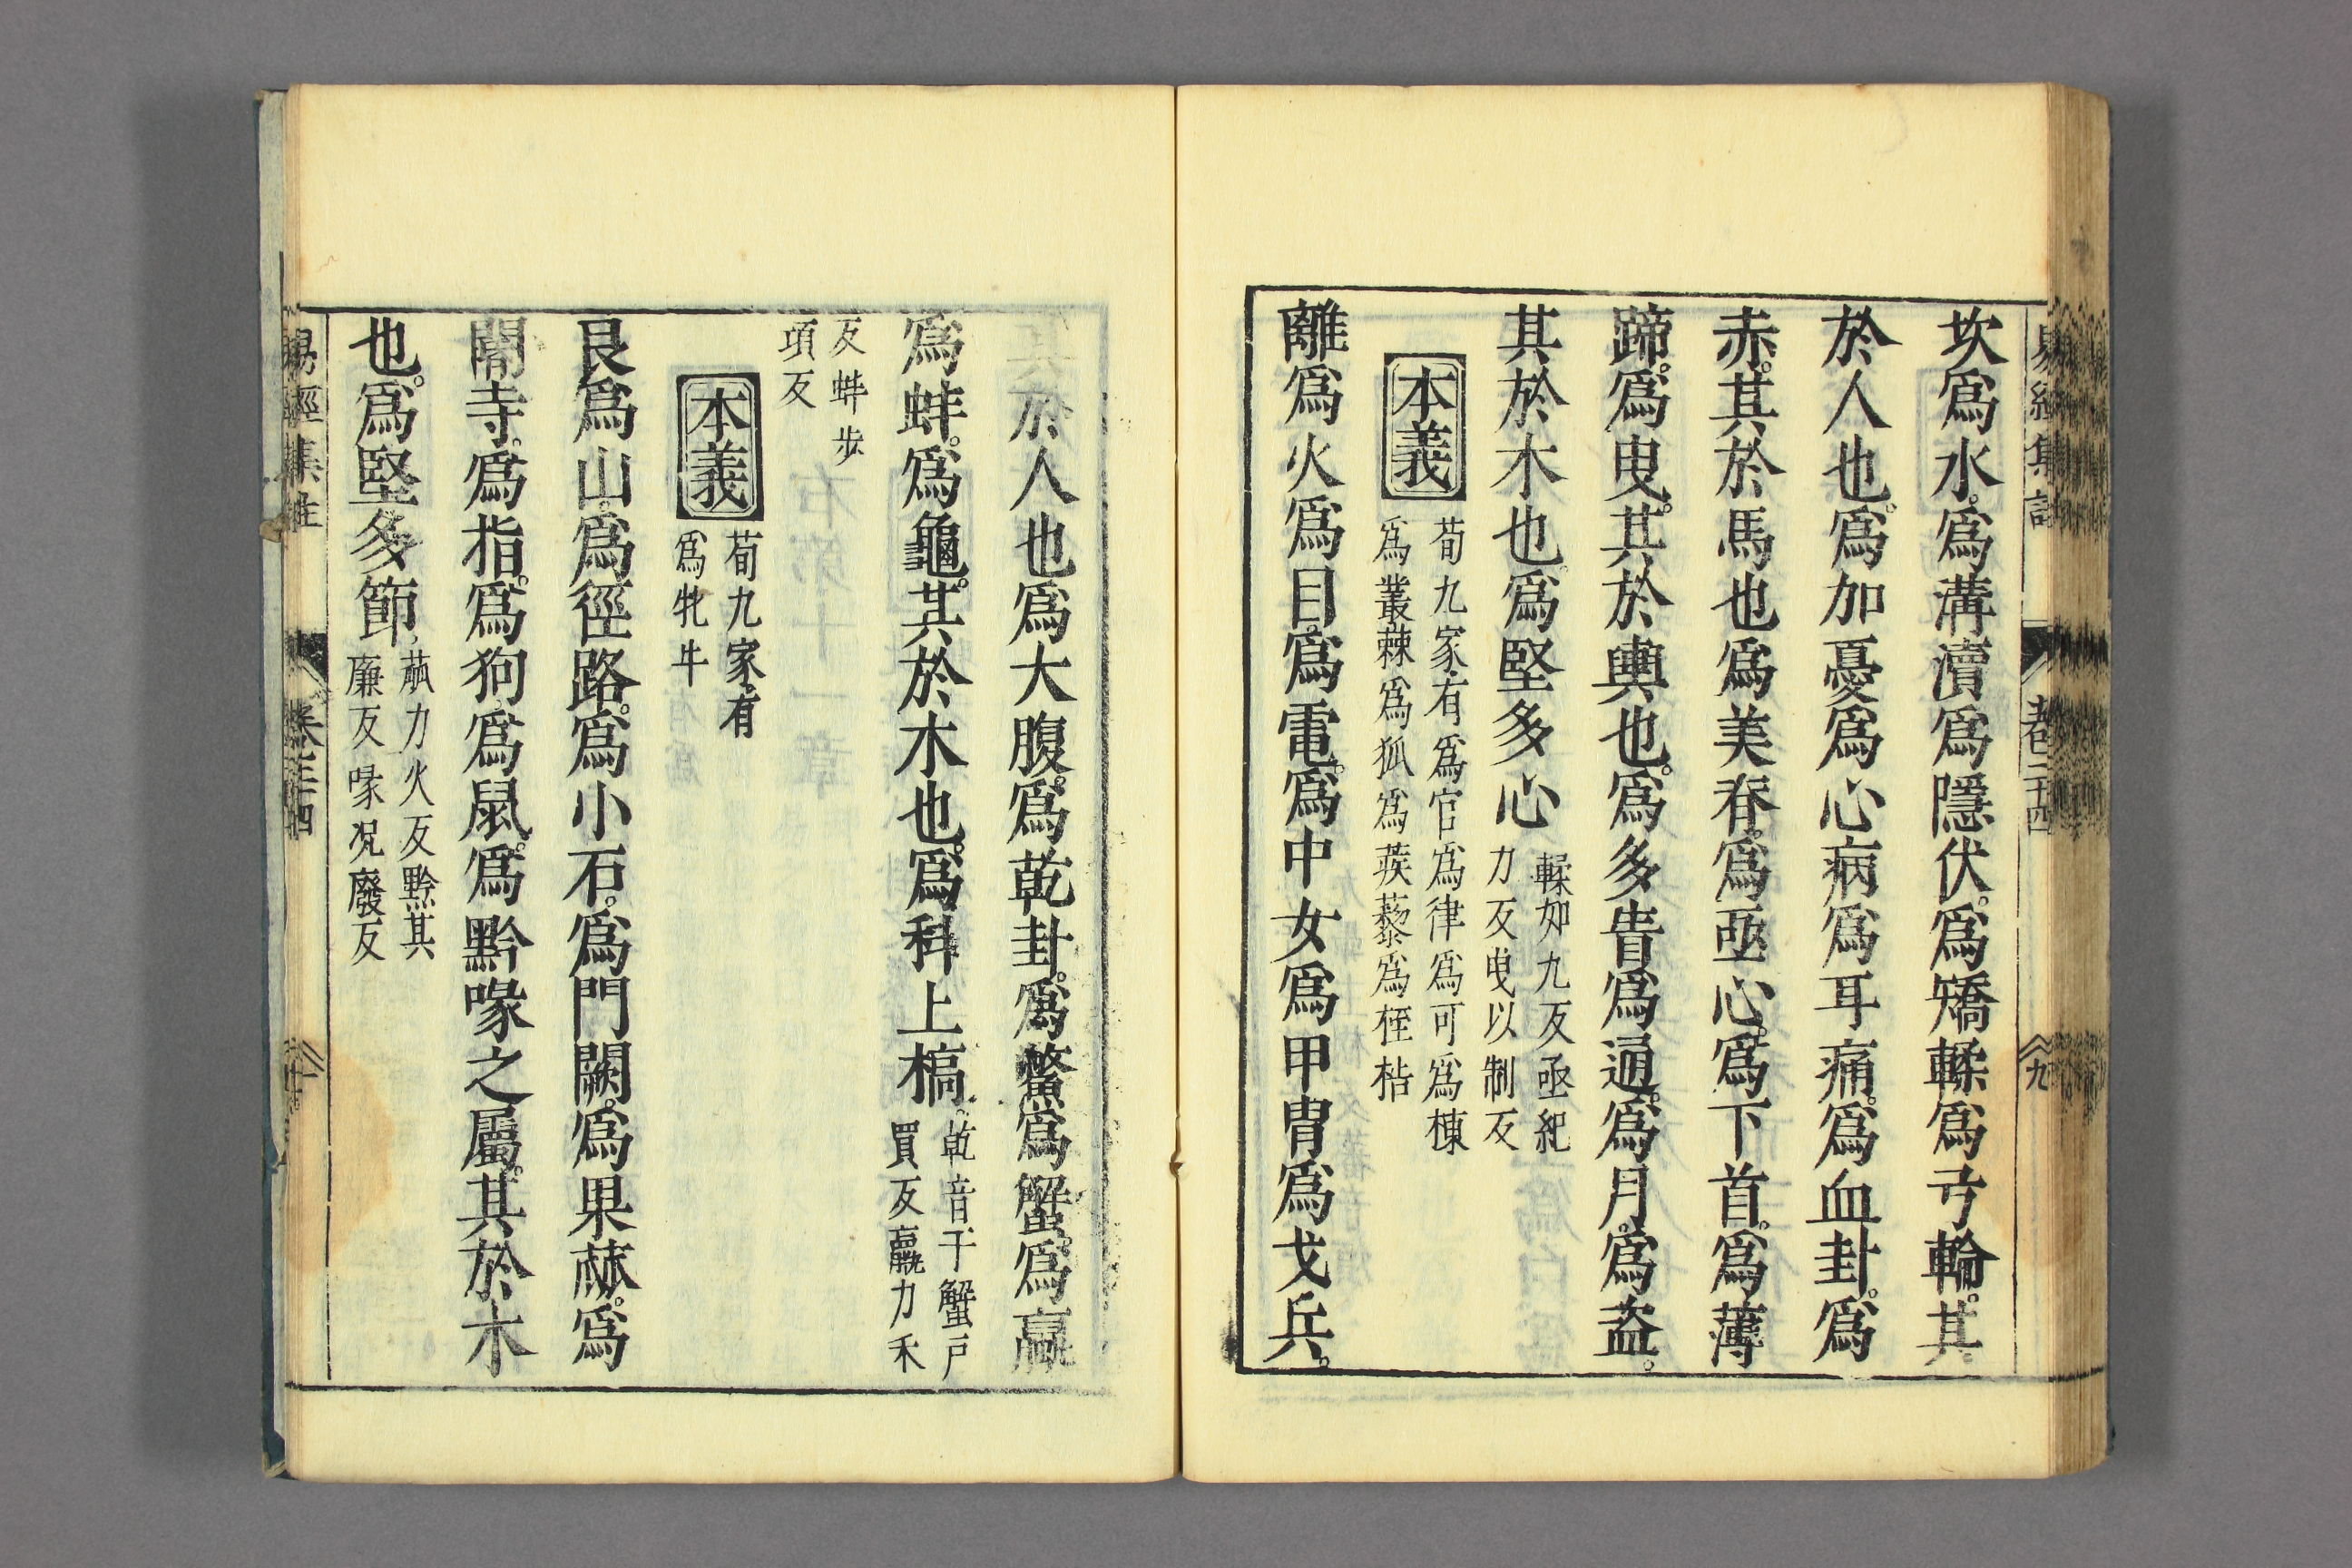 坎爲水。爲溝瀆爲隱伏。爲矯輮爲弓輪。其
於人也。爲加憂爲心病爲耳痛。爲血卦。爲
赤。其於馬也爲美脊。爲亟心。爲下首。爲薄
蹄。爲曳。其於輿也。爲多眚爲通。爲月。爲盗。
其於木也。爲堅多心
輮如九反亟紀
力反曳以制反
本義
荀九家。有爲官爲律爲可爲棟
爲叢棘爲狐爲蒺藜爲桎梏
離爲火爲目。爲電。爲中女爲甲冑爲戈兵。
易經集註
卷二十四
九
其於人也爲大腹。爲乾卦。爲鱉爲蟹。爲蠃
爲蚌。爲龜。其於木也。爲科上槁。
乾音干蟹戶
買反蠃力禾
反蚌步
項反
本義
荀九家。有
爲牝牛
艮爲山。爲徑路。爲小石。爲門闕。爲果蓏。爲
閽寺。爲指。爲狗爲鼠。爲黔喙之屬。其於木
也。爲堅多節。
蓏力火反黔其
廉反喙況廢反
易經集註